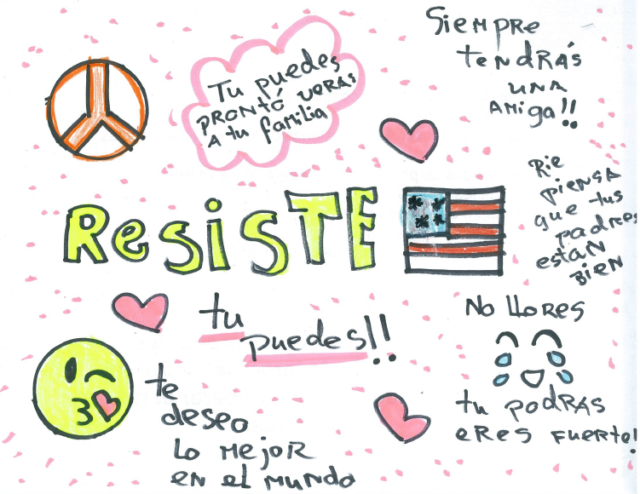 Siempre
tendrás
una
amiga!!
Tu puedes
pronto veras
a tu familia
Rie
piensa
que tus
padres
estan
bien
Resiste
tu
puedes!!
No llores
te
deseo
lo mejor
en el mundo
tu podras
eres fuerte!